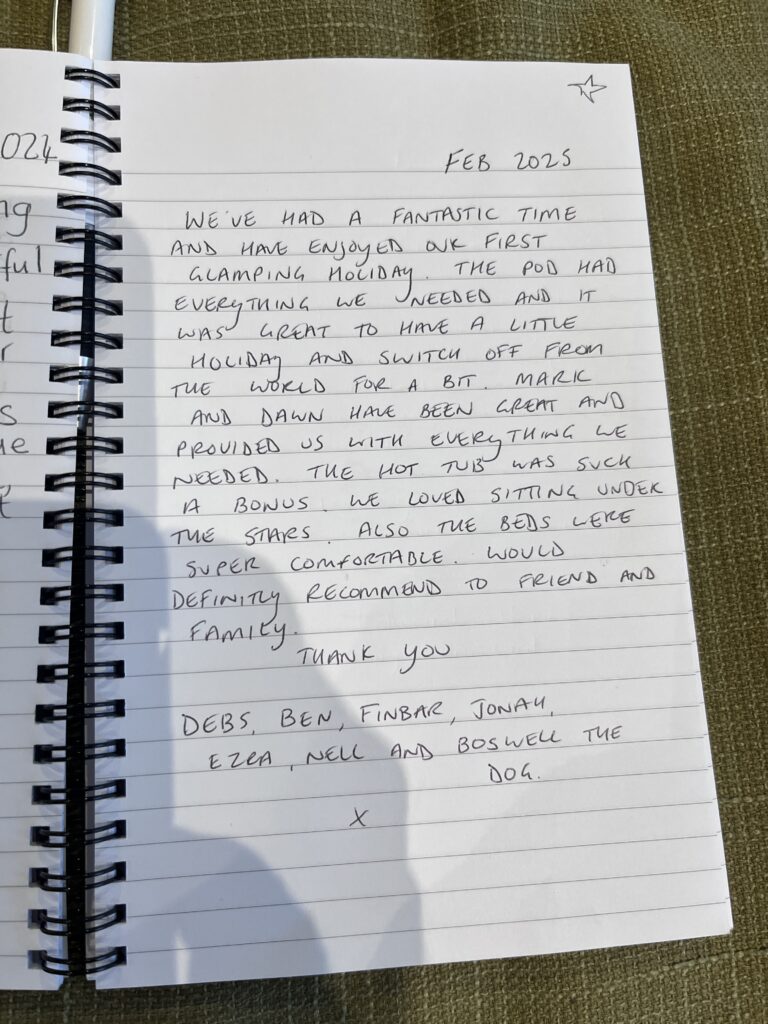 024
ng
ful
t
r
s
ue
t
FEB 2025
WE'VE HAD A FANTASTIC TIME
AND HAVE ENJOYED OUR FIRST
GLAMPING HOLIDAY. THE POD HAD
EVERYTHING WE NEEDED AND IT
WAS GREAT TO HAVE A LITTLE
HOLIDAY AND SWITCH OFF FROM
THE WORLD FOR A BIT. MARK
AND DAWN HAVE BEEN GREAT AND
PROVIDED US WITH EVERYTHING WE
NEEDED. THE HOT TUB WAS SUCH
A BONUS. WE LOVED SITTING UNDER
THE STARS. ALSO THE BEDS WERE
SUPER COMFORTABLE. WOULD
DEFINITLY RECOMMEND TO FRIEND AND
FAMILY.
THANK YOU
DEBS, BEN, FINBAR, JONAH,
EZRA, NELL AND BOSWELL THE
DOG.
X